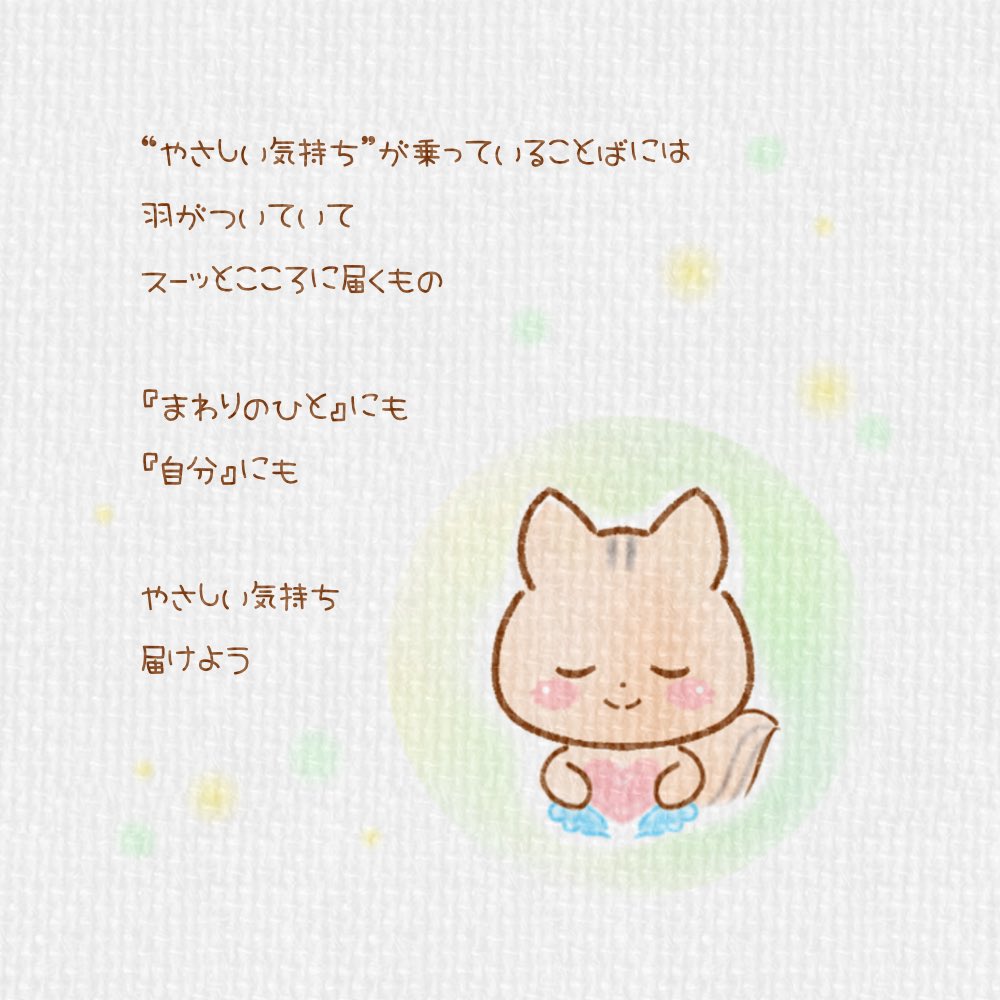 “やさしい気持ち”が乗っていることばには
羽がついていて
スーッとこころに届くもの
『まわりのひと』にも
『自分』にも
やさしい気持ち
届けよう